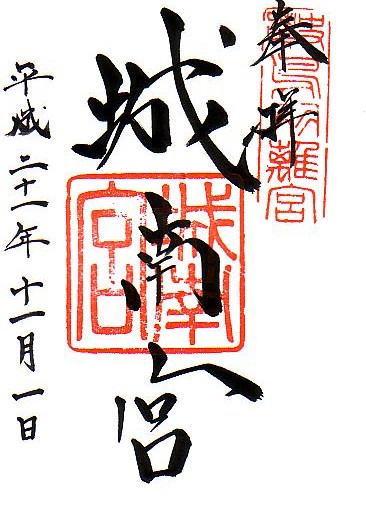 奉拝
鳥羽離宮
城南宮
城南宮
平成二十一年十一月一日